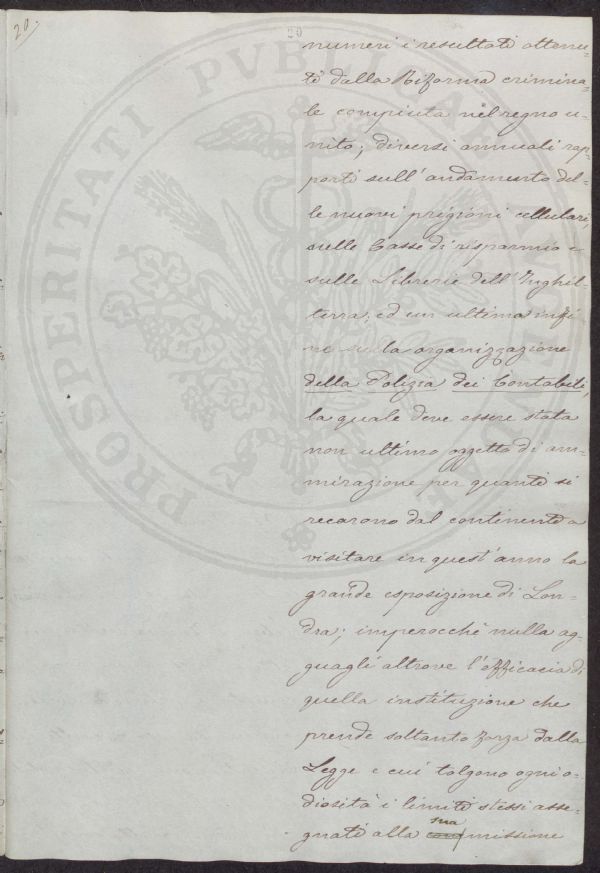 20.
20
numeri i resultati ottenu-
ti dalla Riforma crimina-
le compiuta nel regno u-
nito; diversi annuali rap-
porti sull'andamento del-
le nuovi prigioni cellulari,
sulle Casse di risparmio e
sulle Librerie dell'Inghil-
terra; ed un ultima infi
ne sulla organizzazione
della Polizia dei Contabili,
la quale deve essere stata
non ultimo oggetto di am-
mirazione per quanti si
recarono dal continente a
visitare in quest'anno la
grande esposizione di Lon-
dra; imperocchè nulla ag-
guagli altrove l'efficacia di
quella instituzione che
prende soltanto forza dalla
Legge e cui tolgono ogni o-
diosità i limiti stessi asse-
gnati alla missione
sua
PROSPERITATI PVBLICAE